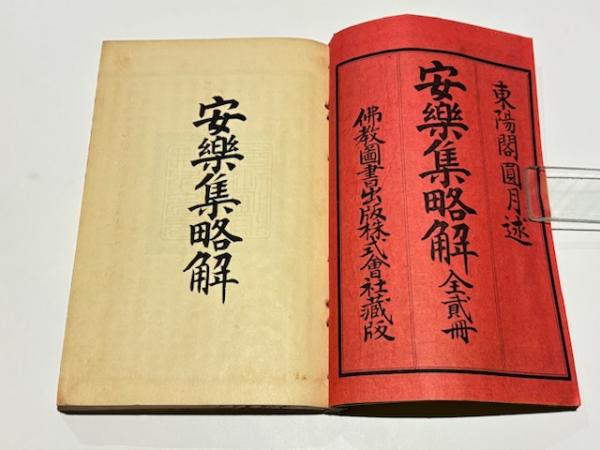 東陽閣圓月述
安樂集略解 全貳冊
佛教圖書出版株式會社藏版
安樂集略解